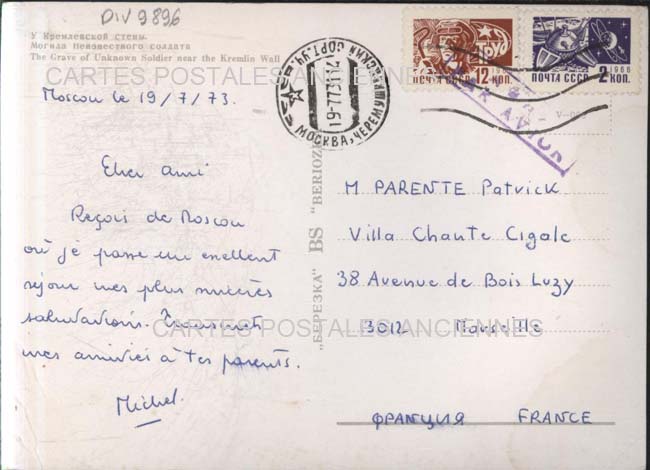 DIV 9896
У Кремлевской стены.
Могила Неизвестного солдата
The Grave of Unknown Soldier near the Kremlin Wall
CARTES POSTALES ANCIENNES
12 коп.
ПОЧТА СССР 2 коп.
1968
19-7 73
МОСКВА, ЧЕРЕМУШКИНСКИЙ СОРТ.
PAR AVION
Moscou le 19/7/73.
Cher ami
Reçois de Moscou
où je passe un excellent
séjour mes plus sincères
salutations. Transmets
mes amitiés à tes parents.
Michel.
"БЕРЕЗКА" BS "BERIOZ
M PARENTE Patrick
Villa Chante Cigale
38 Avenue de Bois Luzy
3012 Marseille
CARTES POSTALES ANCIENNES
ФРАНЦИЯ FRANCE